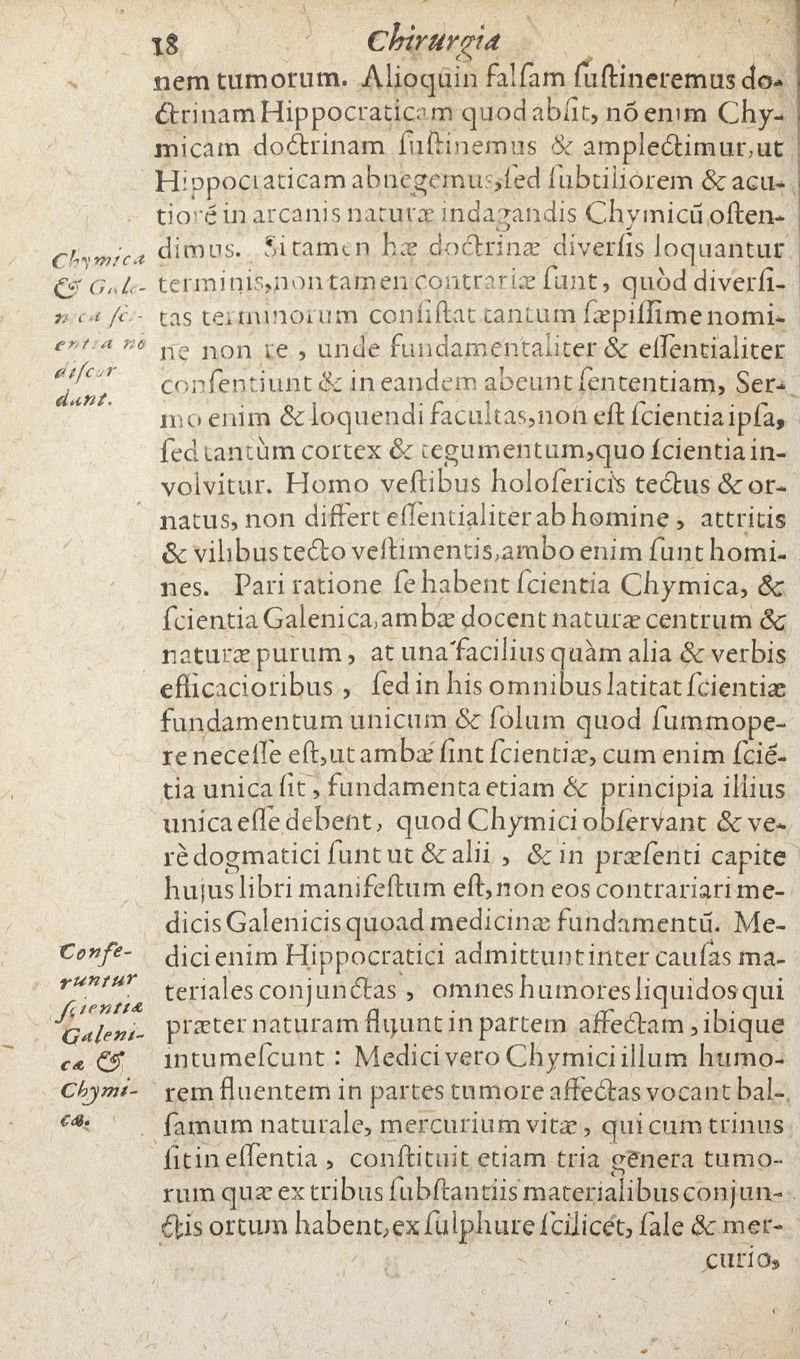 18 Chirurgia
nem tumorum. Alioquin falſam ſuſtineremus do-
ctrinam Hippocraticam quod abſit, nõ enim Chy-
micam doctrinam ſuſtinemus & amplectimur, ut
Hippocraticam abnegemus, ſed ſubtiliorem & acu-
tiorẽ in arcanis naturæ indagandis Chymicũ oſten-
dimus. Si tamen hæ doctrinæ diverſis loquantur
terminis, non tamen contrariæ ſunt, quòd diverſi-
tas terminorum conſiſtat tantum ſæpiſſime nomi-
ne non re, unde fundamentaliter & eſſentialiter
conſentiunt & in eandem abeunt ſententiam, Ser-
mo enim & loquendi facultas, non eſt ſcientia ipſa,
ſed tantùm cortex & tegumentum, quo ſcientia in-
volvitur. Homo veſtibus holoſericis tectus & or-
natus, non differt eſſentialiter ab homine, attritis
& vilibus tecto veſtimentis, ambo enim ſunt homi-
nes. Pari ratione ſe habent ſcientia Chymica, &
ſcientia Galenica, ambæ docent naturæ centrum &
naturæ purum, at una facilius quàm alia & verbis
efficacioribus, ſed in his omnibus latitat ſcientiæ
fundamentum unicum & ſolum quod ſummope-
re neceſſe eſt, ut ambæ ſint ſcientiæ, cum enim ſciẽ-
tia unica ſit, fundamenta etiam & principia illius
unica eſſe debent, quod Chymici obſervant & ve-
rè dogmatici ſunt ut & alii, & in præſenti capite
hujus libri manifeſtum eſt, non eos contrariari me-
dicis Galenicis quoad medicinæ fundamentũ. Me-
dici enim Hippocratici admittunt inter cauſas ma-
teriales conjunctas, omnes humores liquidos qui
præter naturam fluunt in partem affectam, ibique
intumeſcunt: Medici vero Chymici illum humo-
rem fluentem in partes tumore affectas vocant bal-
ſamum naturale, mercurium vitæ, qui cum trinus
ſit in eſſentia, conſtituit etiam tria genera tumo-
rum quæ ex tribus ſubſtantiis materialibus conjun-
ctis ortum habent, ex ſulphure ſcilicet, ſale & mer-
curio,
Chymica
& Gale-
nica ſci-
entia nõ
diſcor
dant.
Confe-
runtur
ſcientiæ
Galeni-
cæ &
Chymi-
cæ.